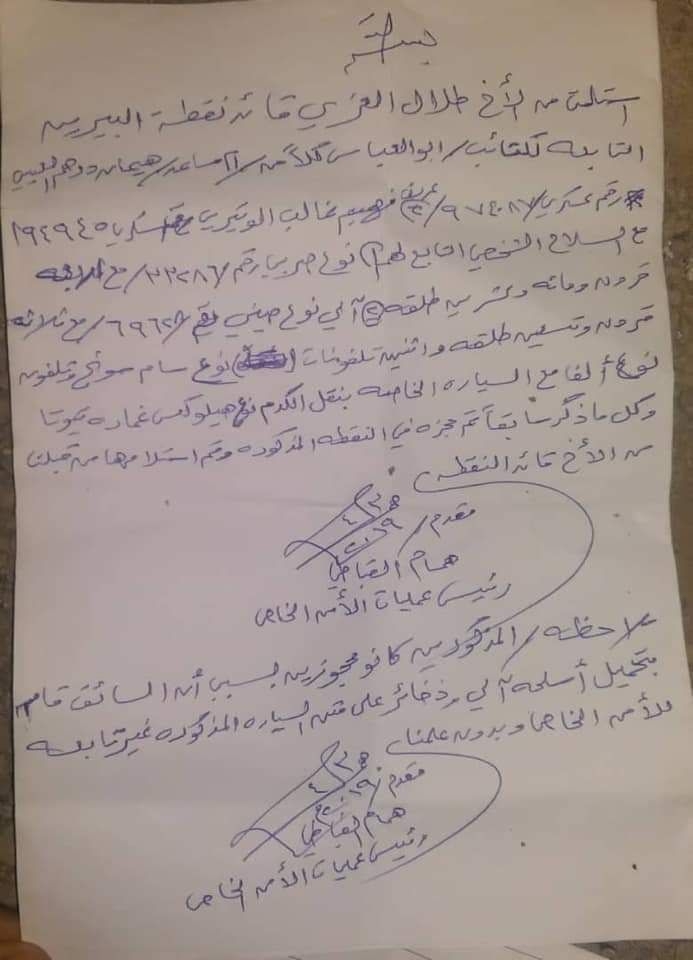 بسم الله
استلمت من الأخ طلال العزي قائد نقطة البيرين
التابعه لكتائب/ابو العباس كلاً من/١/مساعد/هيمان دوهم
رقم عسكري/٩٧٤٠٨٧/٢/عريف فهيم غالب الوتيري رقم عسكري ١٩٤٩٤٥
مع السلاح الشخصي التابع لهم ① نوع صربي رقم/٣٣٢٨٦/مع اربعه
قرون ومائه وعشرين طلقه ② آلي نوع صيني رقم/٦٩٦٢٨/مع ثلاثه
قرون وتسعين طلقه واثنين تلفونات نوع سام سونج وتلفون
نوع ألفا مع السياره الخاصه بنقل الكدم نوع هيلوكس غماره تيوتا
وكل ما ذكر سابقاً تم حجزه في النقطه المذكوره وتم استلامها من قبلنا
من الأخ قائد النقطه
٤/٣
٢٠١٩
مقدم/
همام القباطي
رئيس عمليات الأمن الخاص
ملاحظه/المذكورين كانو محجوزين بسبب أن السائق قام
بتحميل أسلحه آلي وذخائر على متن السياره المذكوره غير تابعه
للأمن الخاص وبدون علمنا
٤/٣
٢٠١٩
مقدم/
همام القباطي
رئيس عمليات الأمن الخاص